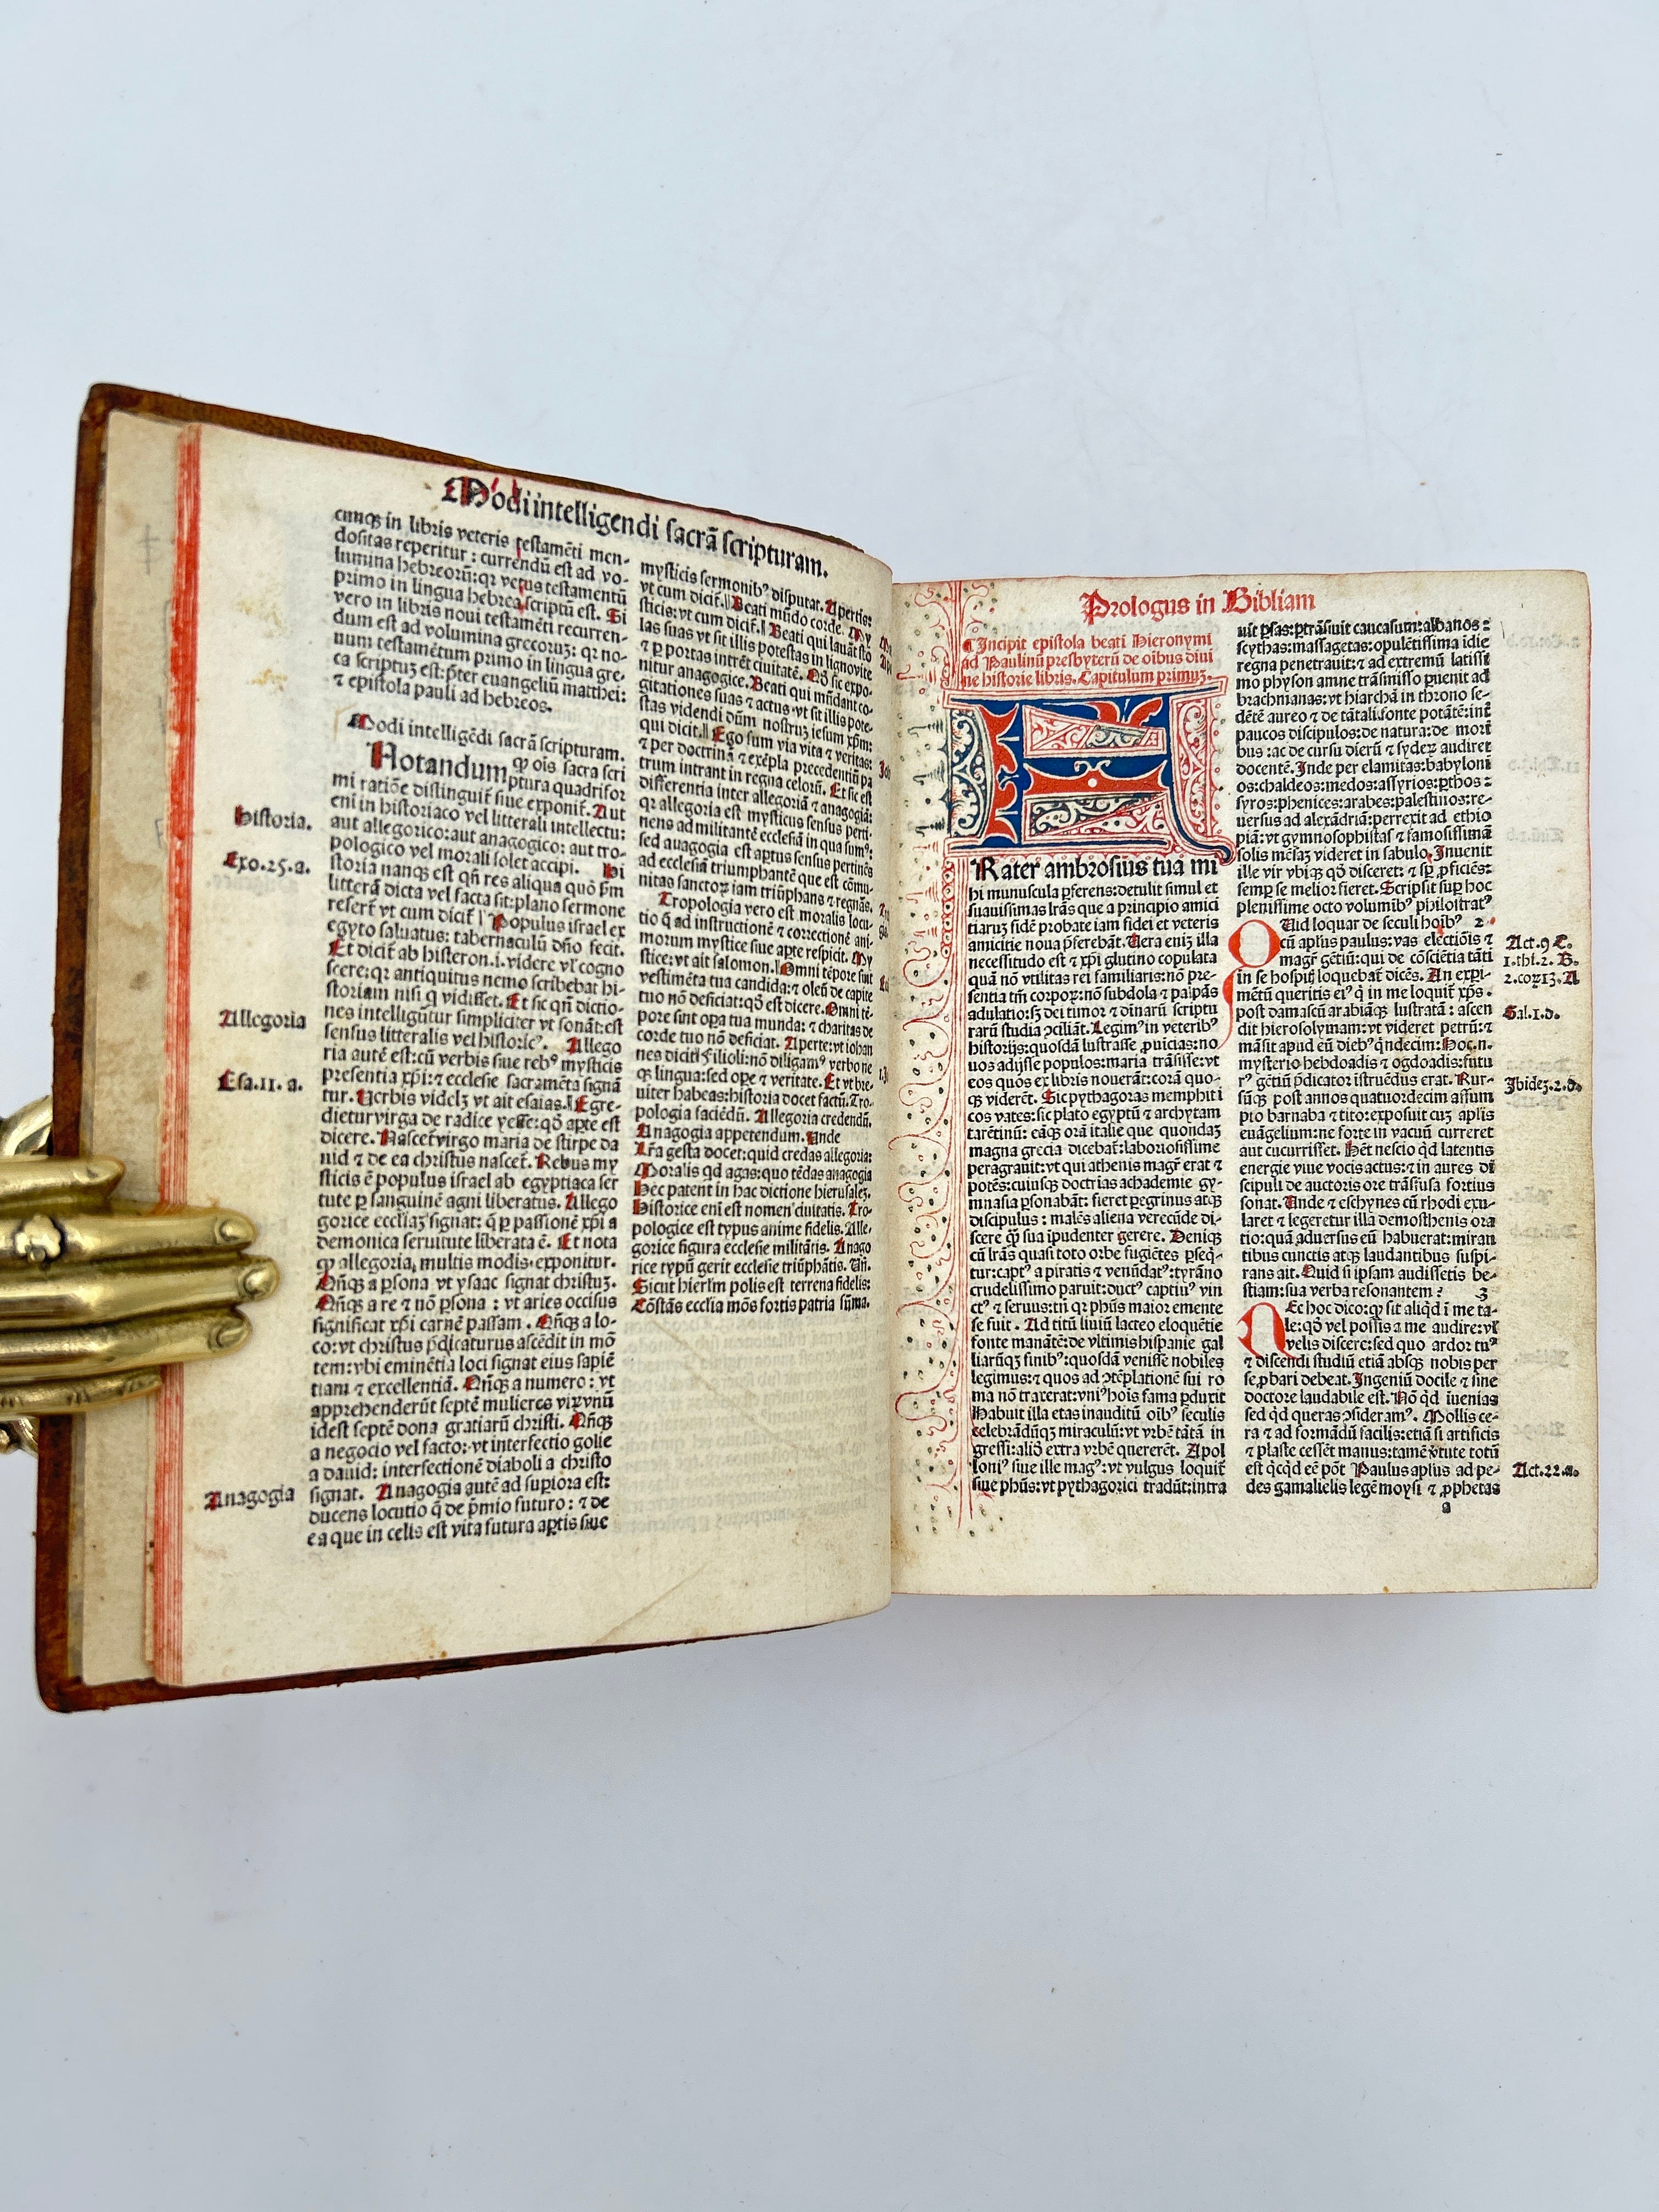 Modi intelligendi sacrā scripturam.
cunqȝ in libris veteris testamēti men-
dositas reperitur : currendū est ad vo-
lumina hebreorū: qr vetus testamentū
primo in lingua hebrea scriptū est. Si
vero in libris noui testamēti recurren-
dum est ad volumina grecoruȝ: qr no-
uum testamētum primo in lingua gre-
ca scriptuȝ est: p̄ter euangeliū matthei:
⁊ epistola pauli ad hebreos.
Modi intelligēdi sacrā scripturam.
Notandum
qꝫ ois sacra scri
ptura quadrifor
mi ratiōe distinguit̄ siue exponit̄. Aut
eni in historiaco vel litterali intellectu:
aut allegorico: aut anagogico: aut tro-
pologico vel morali solet accipi. Hi
storia nanqȝ est qn̄ res aliqua quō ꝑm
litterā dicta vel facta sit: plano sermone
refert̄ vt cum dicit̄ Populus israel ex
egyto saluatus: tabernaculū dn̄o fecit.
Et dicit̄ ab histeron .i. videre vl̄ cogno
scere: qr antiquitus nemo scribebat hi-
storiam nisi q̄ vidisset. Et sic qn̄ dictio-
nes intelligūtur simpliciter vt sonāt: est
sensus litteralis vel historicꝰ. Allego
ria autē est: cū verbis siue rebꝰ mysticis
presentia xp̄i: ⁊ ecclesie sacramēta signā
tur. Verbis videlȝ vt ait esaias. Egre-
dietur virga de radice yesse: qō apte est
dicere. Nascet̄ virgo maria de stirpe da
uid ⁊ de ea christus nascet̄. Rebus my
sticis ē populus israel ab egyptiaca ser
tute ꝑ sanguinē agni liberatus. Allego
gorice eccliaȝ signat: q̄ ꝑ passionē xp̄i a
demonica seruitute liberata ē. Et nota
qꝫ allegoria multis modis exponitur.
Qn̄qȝ a ꝑsona vt ysaac signat christuȝ.
Qn̄qȝ a re ⁊ nō ꝑsona : vt aries occisus
significat xp̄i carnē passam . Qn̄qȝ a lo-
co: vt christus p̄dicaturus ascēdit in mō
tem: vbi eminētia loci signat eius sapiē
tiam ⁊ excellentiā. Qn̄qȝ a numero : vt
apprehenderūt septē mulieres virū vnū
idest septē dona gratiarū christi. Qn̄qȝ
a negocio vel facto: vt intersectio golie
a dauid: intersectionē diaboli a christo
signat. Anagogia autē ad supiora est:
ducens locutio q̄ de p̄mio futuro : ⁊ de
ea que in celis est vita futura aptis siue
Historia.
Exo.25.a.
Allegoria
Esa.11. a.
Anagogia
mysticis sermonibꝰ disputat. Apertis:
vt cum dicit̄. Beati mūdo corde. My
sticis: vt cum dicit̄. Beati qui lauāt sto
las suas vt sit illis potestas in ligno vite
⁊ ꝑ portas intrēt ciuitatē. Qō sic expo-
nitur anagogice. Beati qui mūdant co-
gitationes suas ⁊ actus vt sit illis pote-
stas videndi dūm nostruȝ iesum xp̄m:
qui dicit. Ego sum via vita ⁊ veritas:
⁊ per doctrinā ⁊ exēpla precedentiū pa
trum intrant in regna celorū. Et sic est
differentia inter allegoriā ⁊ anagogiā:
qr allegoria est mysticus sensus perti-
nens ad militantē ecclesiā in qua sumꝰ:
sed auagogia est aptus sensus pertinēs
ad ecclesiā triumphantē que est cōmu-
nitas sanctoꝝ iam triūphans ⁊ regnās.
Tropologia vero est moralis locu-
tio q̄ ad instructionē ⁊ correctionē ani-
morum mystice siue apte respicit. My
stice: vt ait salomon. Omni tēpore sint
vestimēta tua candida: ⁊ oleū de capite
tuo nō deficiat: qō est dicere. Omni tē-
pore sint oꝑa tua munda: ⁊ charitas de
corde tuo nō deficiat. Aperte: vt iohan
nes dicit̄ Filioli: nō diligamꝰ verbo ne
qȝ lingua: sed oꝑe ⁊ veritate. Et vt bre-
uiter habeas: historia docet factū. Tro-
pologia faciēdū. Allegoria credendū.
Anagogia appetendum. Unde
Lr̄a gesta docet: quid credas allegoria:
Moralis qd agas: quo tēdas anagogia
Hec patent in hac dictione hierusaleȝ.
Historice eni est nomen ciuitatis. Tro-
pologice est typus anime fidelis. Alle-
gorice figura ecclesie militātis. Anago
rice typū gerit ecclesie triūphātis. Un̄.
Sicut hierlm̄ polis est terrena fidelis:
Cōstās ecclia mōs fortis patria sūma.
Prologus in Bibliam
Incipit epistola beati Hieronymi
ad Paulinū presbyterū de oibus diui
ne historie libris. Capitulum primuȝ.
F
Rater ambrosius tua mi
hi munuscula ꝑferens: detulit simul et
suauissimas lr̄as que a principio amici
tiaruȝ fidē probate iam fidei et veteris
amicitie noua p̄ferebāt. Uera eniȝ illa
necessitudo est ⁊ xp̄i glutino copulata
quā nō vtilitas rei familiaris: nō pre-
sentia tm̄ corpoꝝ: nō subdola ⁊ palpās
adulatio: sȝ dei timor ⁊ diuinarū scriptu
rarū studia ꝯciliāt. Legimꝰ in veteribꝰ
historijs: quosdā lustrasse ꝓuicias: no
uos adijsse populos: maria trāsisse: vt
eos quos ex libris nouerāt: corā quo-
qȝ viderēt. Sic pythagoras memphit i
cos vates: sic plato egyptū ⁊ archytam
tarētinū: eāqȝ orā italie que quondaȝ
magna grecia dicebat̄: laboriosissime
peragrauit: vt qui athenis magr̄ erat ⁊
potēs: cuiusqȝ doctrias achademie gy-
mnasia ꝑsonabāt: fieret ꝑegrinus atqȝ
discipulus : malēs aliena verecūde di-
scere qꝫ sua ipudenter gerere. Deniqȝ
cū lr̄as quasi toto orbe fugiētes ꝑseq̄-
tur: captꝰ a piratis ⁊ venūdatꝰ: tyrāno
crudelissimo paruit: ductꝰ captiuꝰ vin
ctꝰ ⁊ seruus: tn̄ qr ph̄us maior emente
se fuit . Ad titū liuiū lacteo eloquētie
fonte manātē: de vltimis hispanie gal
liarūqȝ finibꝰ: quosdā venisse nobiles
legimus: ⁊ quos ad ꝯtēplationē sui ro
ma nō traxerat: vniꝰ hois fama ꝑduxit
Habuit illa etas inauditū oibꝰ seculis
celebrādūqȝ miraculū: vt vrbē tātā in
gressi: aliō extra vrbē quererēt. Apol
loniꝰ siue ille magꝰ: vt vulgus loquit̄
siue ph̄us: vt pythagorici tradūt: intra
uit ꝑsas: ꝑtrāsiuit caucasum: albanos :
scythas: massagetas: opulētissima idie
regna penetrauit: ⁊ ad extremū latissi
mo physon amne trāsmisso ꝑuenit ad
brachmanas: vt hiarchā in throno se-
dētē aureo ⁊ de tātali fonte potātē: int̄
paucos discipulos: de natura: de mori
bus : ac de cursu dierū ⁊ syderȝ audiret
docentē. Inde per elamitas: babyloni
os: chaldeos: medos: assyrios: ꝑthos :
syros: phenices: arabes: palestinos: re-
uersus ad alexādriā: perrexit ad ethio
piā: vt gymnosophistas ⁊ famosissimā
solis mēsaȝ videret in sabulo. Inuenit
ille vir vbiqȝ qō disceret: ⁊ sꝑ ꝓficiēs:
semꝑ se melior fieret. Scripsit suꝑ hoc
plenissime octo volumibꝰ philostratꝰ
Quid loquar de seculi hoibꝰ 2.
cū aplus paulus: vas electiōis ⁊
magr̄ gētiū: qui de cōsciētia tāti
in se hospitꝭ loquebat̄ dicēs. An expi-
mētū queritis eiꝰ q̄ in me loquit̄ xp̄s.
post damascū arabiāqȝ lustratā : ascen
dit hierosolymam: vt videret petrū: ⁊
māsit apud eū diebꝰ q̄ndecim: Hoc.n.
mysterio hebdoadis ⁊ ogdoadis: futu
rꝰ gētiū p̄dicator istruēdus erat. Rur-
sūqȝ post annos quatuordecim assum
pto barnaba ⁊ tito: exposuit cuȝ aplis
euāgelium: ne forte in vacuū curreret
aut cucurrisset. Hēt nescio qd latentis
energie viue vocis actus: ⁊ in aures di
scipuli de auctoris ore trāsfusa fortius
sonat. Unde ⁊ eschynes cū rhodi exu-
laret ⁊ legeretur illa demosthenis ora
tio: quā aduersus eū habuerat: miran
tibus cunctis atqȝ laudantibus suspi-
rans ait. Quid si ipsam audissetis be-
stiam: sua verba resonantem? 3
Nec hoc dico: qꝫ sit aliqd ī me ta-
le: qō vel possis a me audire: vl̄
velis discere: sed quo ardor tuꝰ
⁊ discendi studiū etiā absqȝ nobis per
se ꝓbari debeat. Ingeniū docile ⁊ sine
doctore laudabile est. Nō qd iuenias
sed qd queras ꝯsideramꝰ. Mollis ce-
ra ⁊ ad formādū facilis: etiā si artificis
⁊ plaste cessēt manus: tamē v̄tute totū
est qcqd eē pōt Paulus aplus ad pe-
des gamalielis legē moysi ⁊ ꝓphetas
a
Act.9 C.
1.thi.2. B.
2.coꝝ13. A
Gal.1.d.
Ibideȝ.2.d.
Act.22.a.